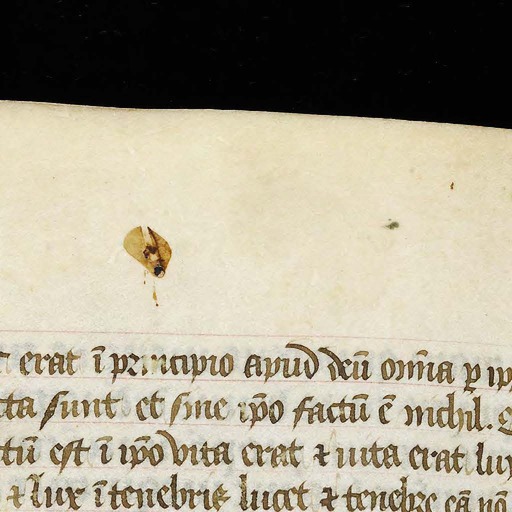 erat ī principio apud deū omīa ꝑ ip
cta sunt et sine ip̄o factū ē nichil. Q
tū est ī ip̄o vita erat ⁊ uita erat lux
⁊ lux ī tenebris lucet ⁊ tenebre eā nō